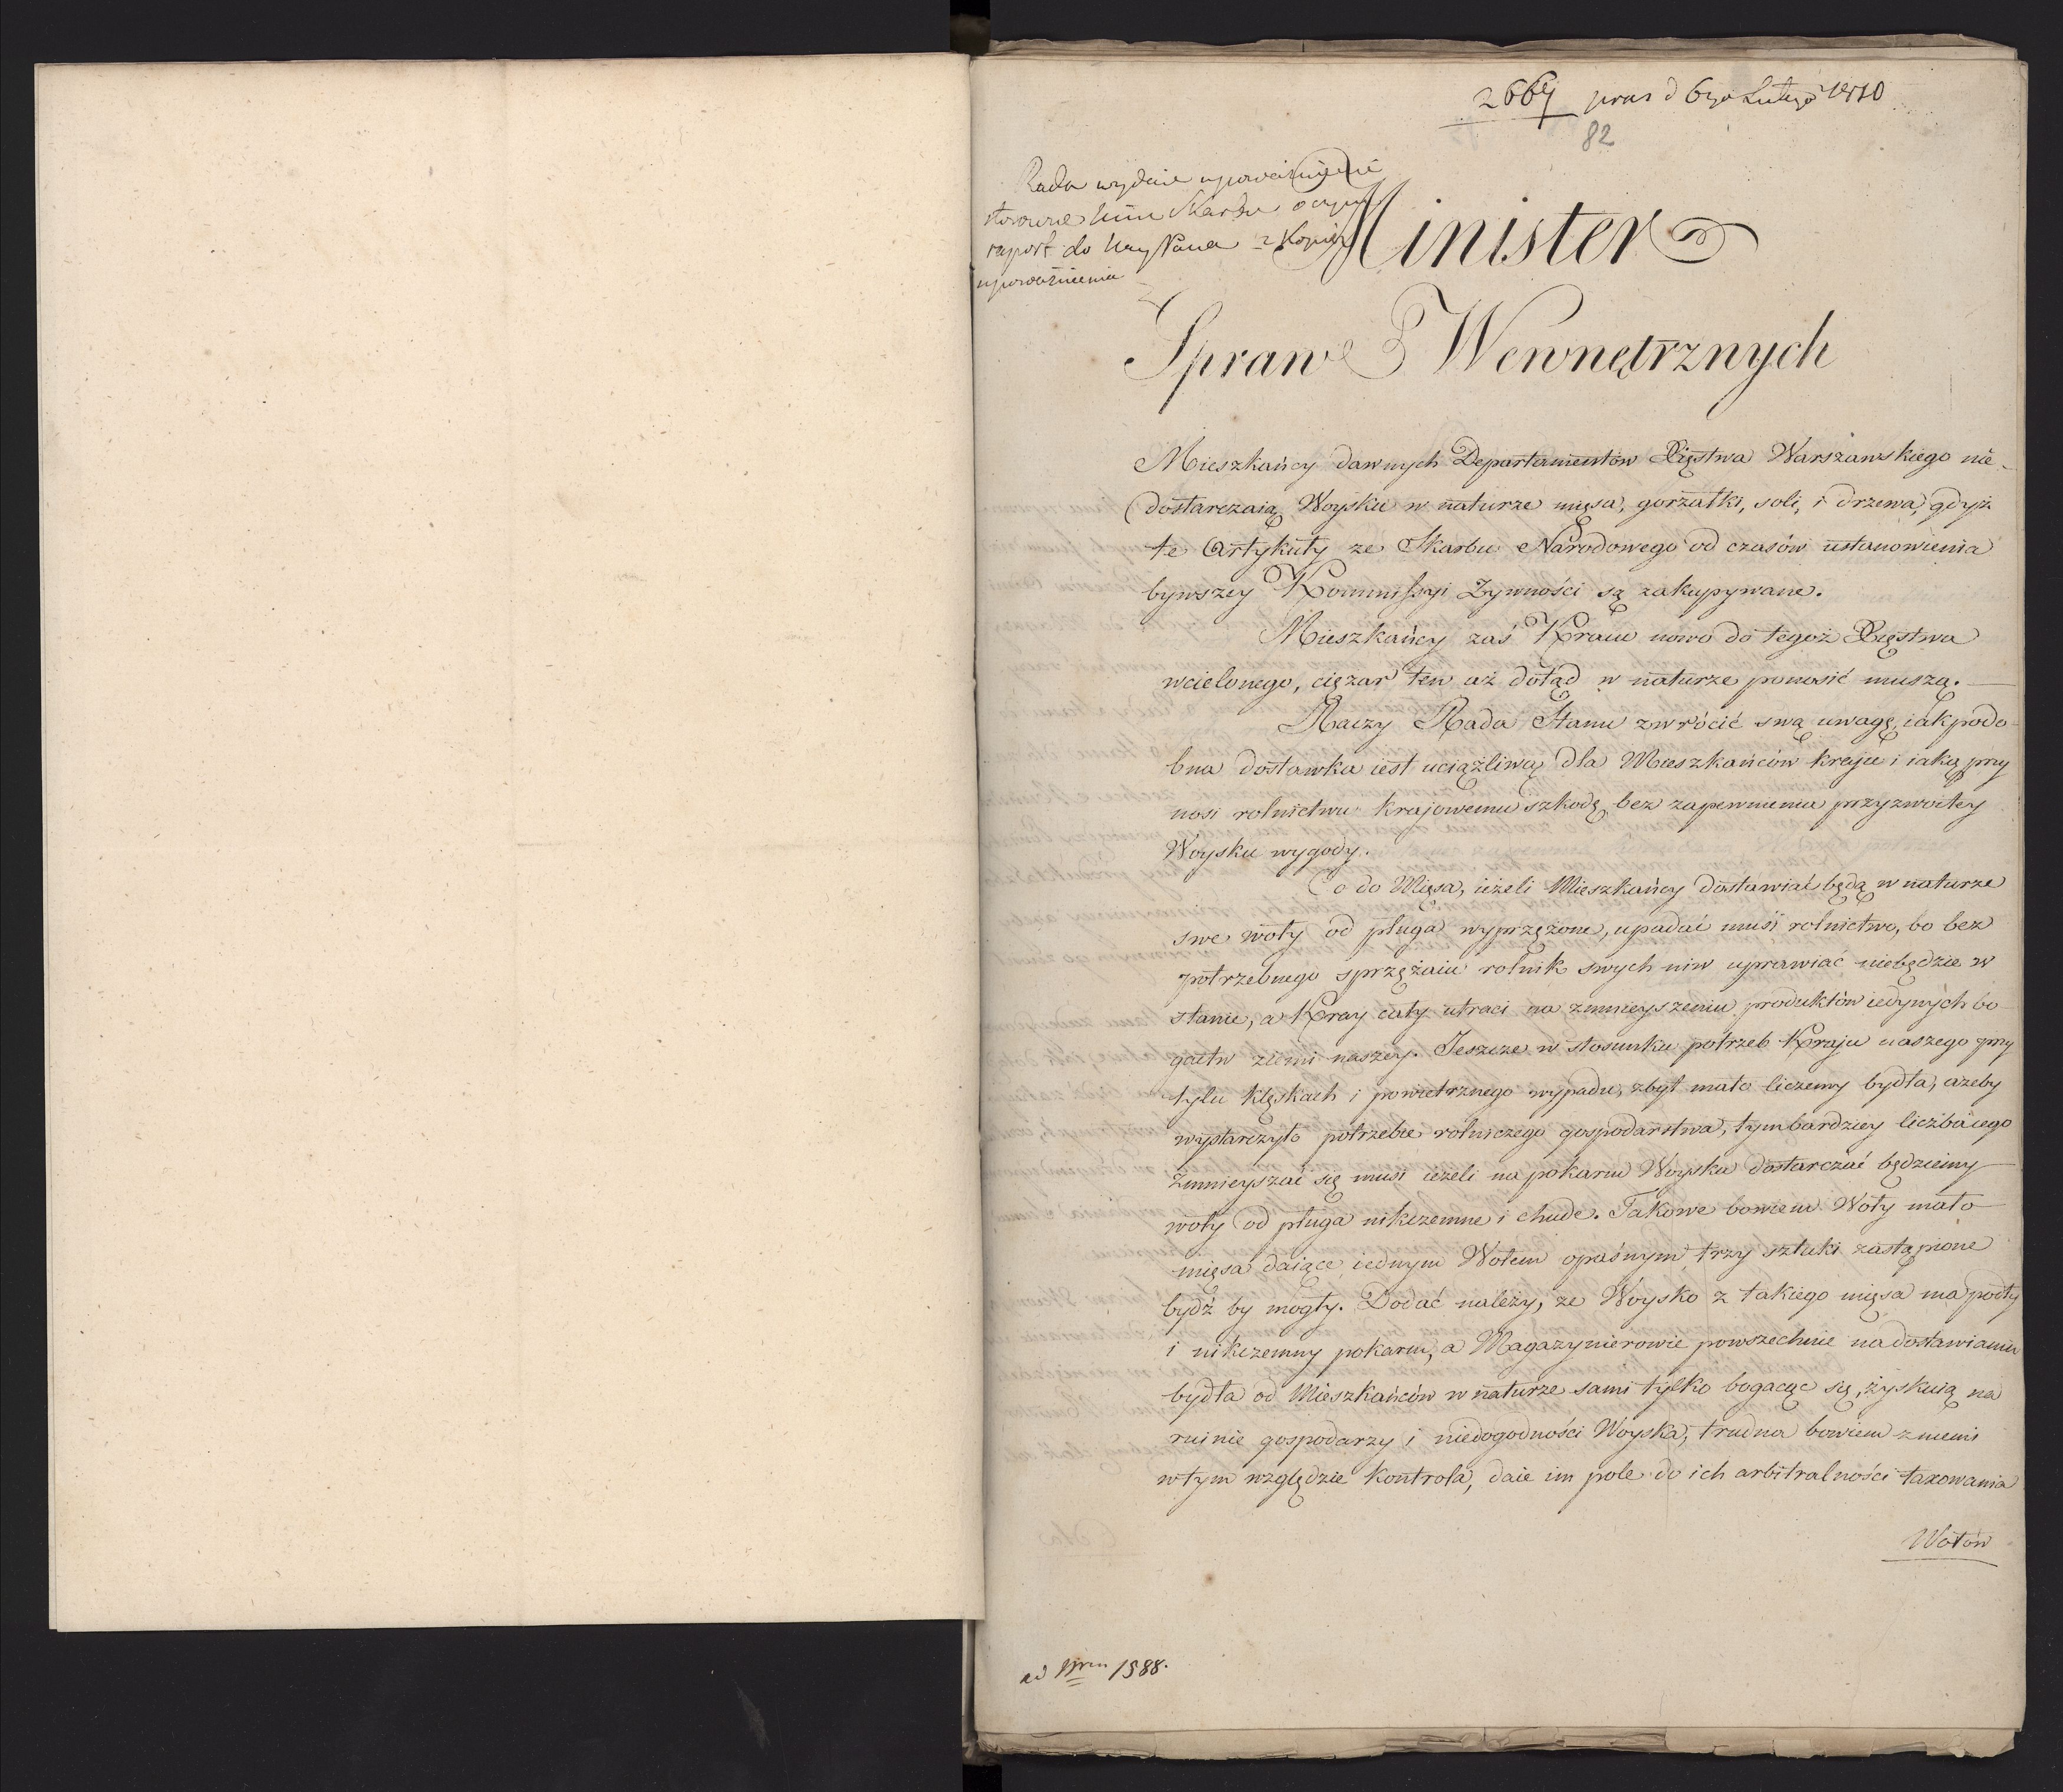 2669 pras d 6go Lutego 1810
82
Rada wydaie upoważnienie
stosowne Skarbu o czym
raport do Nay Pana z kopią
upoważnienia
Minister
Spraw Wewnętrznych
Mieszkańcy dawnych Departamentów Xięstwa Warszawskiego nie-
dostarczaią Woysku w naturze mięsa, gorzałki, soli, i drzewa, gdyż
te Artykuły ze Skarbu Narodowego od czasów ustanowienia
bywszey Kommissyi Żywności są zakupywane.
Mieszkańcy zaś Kraiu nowo do tegoż Xięstwa
wcielonego, ciężar ten aż dotąd w naturze ponosić muszą.
Raczy Rada Stanu zwrócić swą uwagę, iak podo-
bna dostawka iest uciążliwą dla Mieszkańców kraju i iaką przy
nosi rolnictwu krajowemu szkodę, bez zapewnienia przyzwoitey
Woysku wygody.
Co do Mięsa, ieżeli Mieszkańcy dostawiać będą w naturze
swe woły od pługa wyprzężone, upadać musi rolnictwo, bo bez
potrzebnego sprzężaiu rolnik swych niw uprawiać niebędzie w
stanie, a Kray cały utraci na zmnieyszeniu produktów iedynych bo-
gactw ziemi naszey. Jeszcze w stosunku potrzeb Kraju naszego przy
tylu klęskach i powietrznego wypadu, zbyt mało liczemy bydła, ażeby
wystarczyło potrzebie rolniczego gospodarstwa, tymbardziey liczba iego
zmnieyszać się musi ieżeli na pokarm Woyska dostarczać będziemy
woły od pługa nikczemne i chude. Takowe bowiem Woły mało
mięsa daiące iednym Wołem opaśnym trzy sztuki zastąpione
bydź by mogły. Dodać należy, ze Woysko z takiego mięsa ma podły
i nikczemny pokarm, a Magazynierowie powszechnie na dostawianiu
bydła od Mieszkańców w naturze sami tylko bogacąc się, zyskuią na
ruinie gospodarzy i niedogodności Woyska, trudna bowiem z niemi
w tym względzie kontrola, daie im pole do ich arbitralności taxowania
Wołów
ad Nrm 1588.